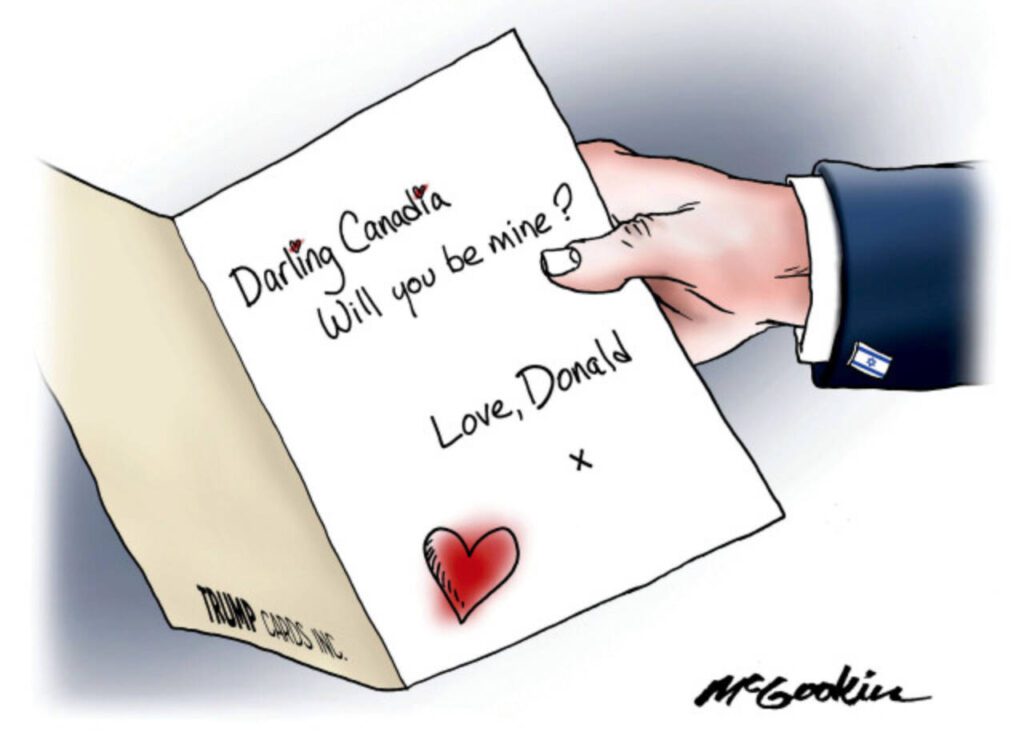 Darling Canadia
Will you be mine?
Love, Donald
x
TRUMP CARDS INC.
McGookin